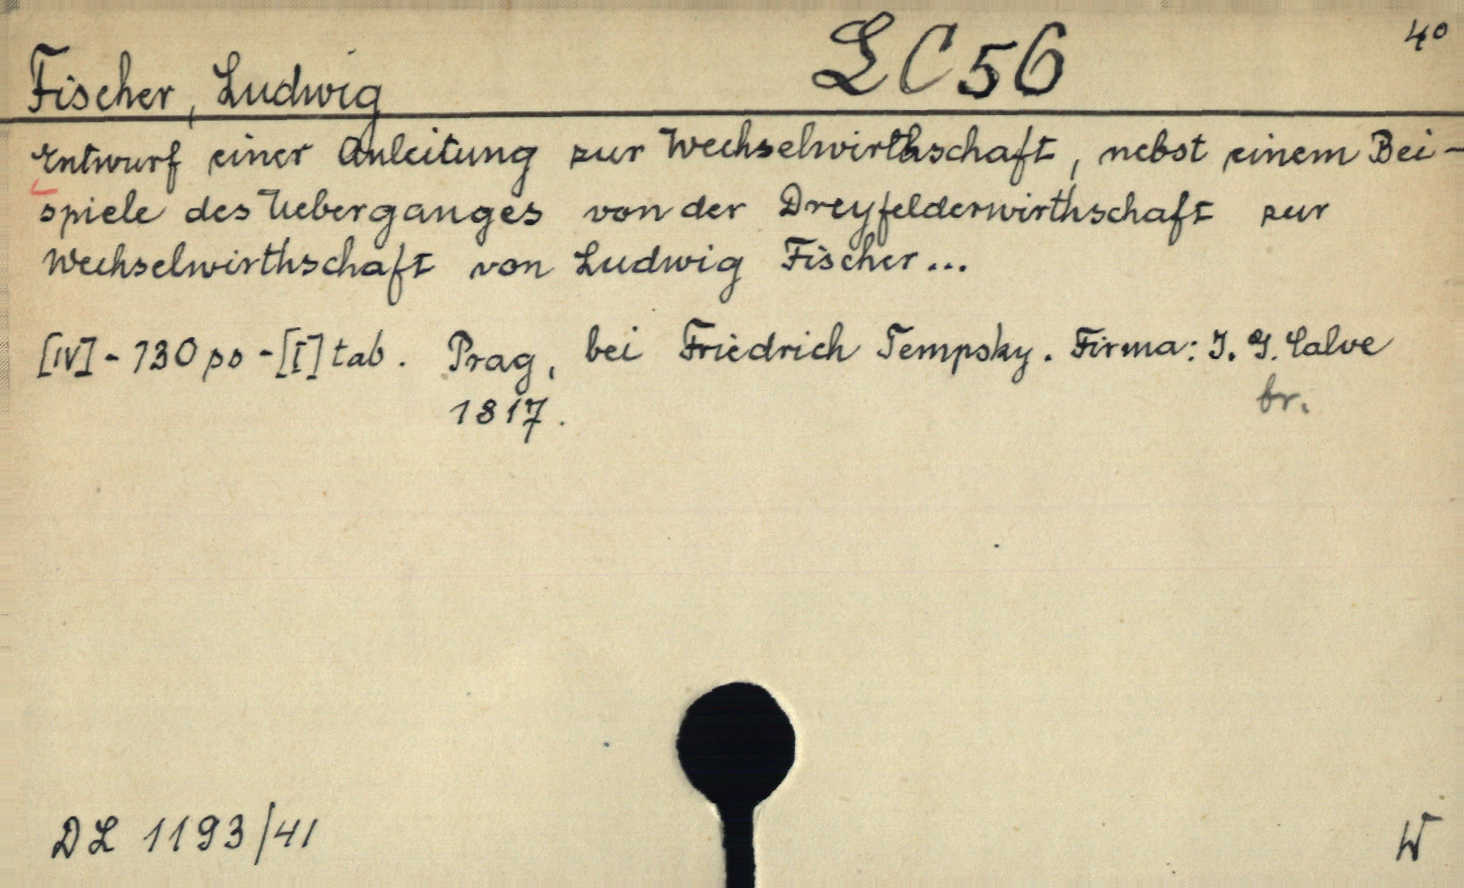 LC56
4°
Fischer, Ludwig
Entwurf einer Anleitung zur Wechselwirthschaft, nebst einem Bei-
spiele des Ueberganges von der Dreyfelderwirthschaft zur
Wechselwirthschaft von Ludwig Fischer...
[IV] - 130 ps - [I] tab. Prag, bei Friedrich Tempsky. Firma: J. G. Calve
1817.
br.
DL 1193/41
W